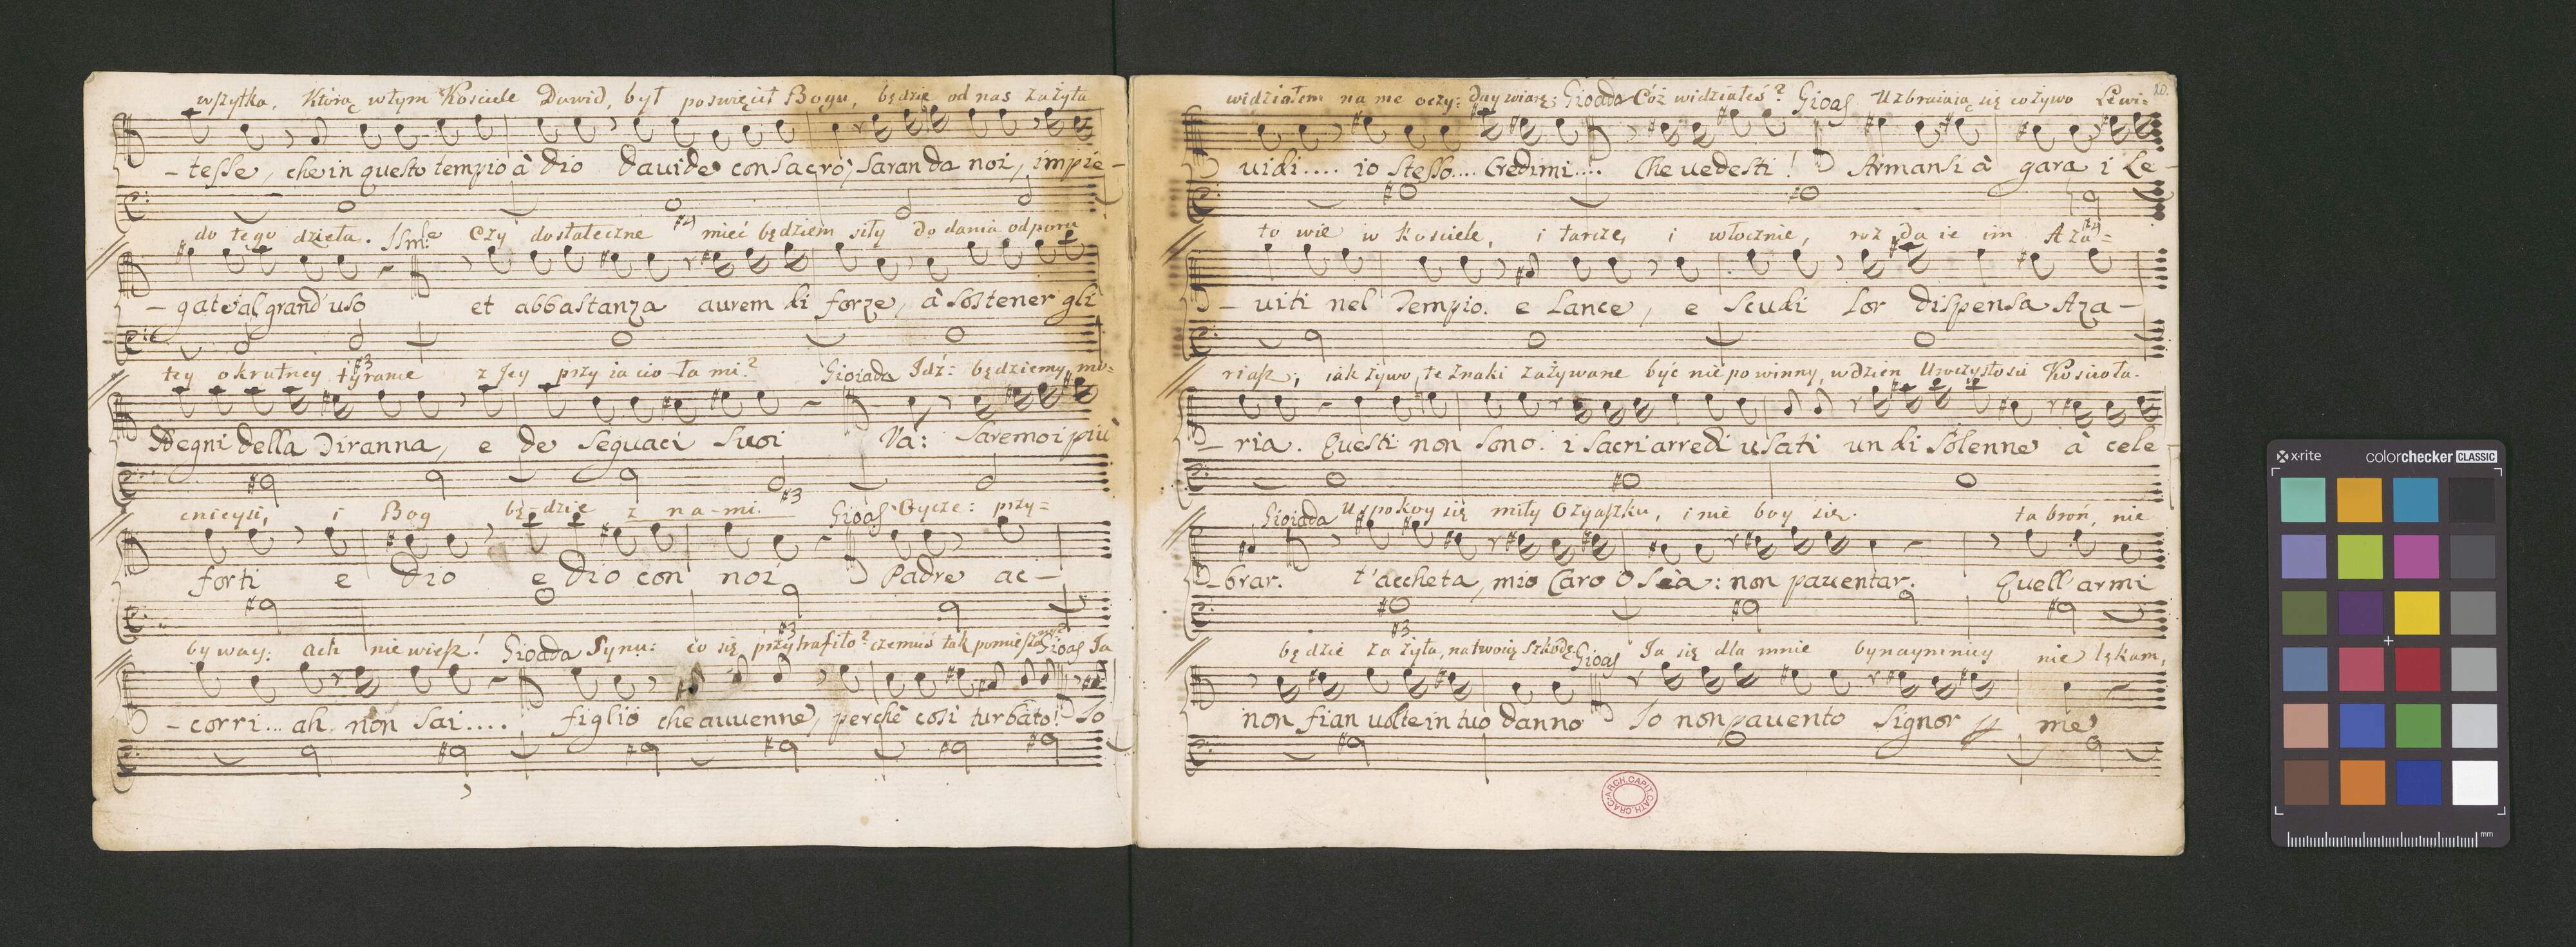 wszytka, którą w tym Kosciele Dawid, był poswięcił Bogu, będzie od nas zażyta
- tesse, che in questo tempio à dio Davide consacrò, saran da noi, impie-
do tego dzieła. Ism:le Czy dostateczne mieć będziem siły do dania odporu
- gate al grand' uso et abbastanza aurem di forze, à sostener gli
tey okrutney tyranie z Jey przyiaciołami? Gioiada Idź: będziemy mo=
sdegni della Tiranna, e de seguaci suoi Và: saremo i più
cnieysi, i Bog będzie z na-mi. Gioas Oycze: przy=
forti e Dio e Dio con noi Padre ac-
byway: ach nie wiesz! Gioada Synu: co się przytrafiło? czemuś tak pomieszany? Gioas Ja
- corri... ah non sai.... figlio che auuenne, perchè così turbato! Io
20.
widziałem na me oczy: day wiarę: Gioada Cóż widziałeś? Gioas Uzbraiaią się co żywo Lewi=
uidi.... io stesso.... Credimi.... Che uedesti! Armansi à gara i Le-
towie w kosciele, i tarcze, i włocznie, rozdaie im Aza=
- uiti nel Tempio. e Lance, e scudi Lor dispensa Aza-
riasz; iak żywo, te znaki zażywane być nie powinny, w dzien Uroczystosci Kosciola.
- ria. Questi non sono. i sacri arredi usati un di solenne à cele
Gioiada Uspokoy się miły Ozyaszku, i nie boy się. ta broń, nie
- brar. t'accheta, mio Caro Osèa: non pauentar. Quell' armi
będzie zażyta, na twoię szkodę. Gioas Ja się dla mnie bynaymniey nie lękam,
non fian uolte in tuo danno Io non pauento Signor p me
ARCH. CAPIT. CATH. CRAC.
x-rite colorchecker CLASSIC
mm